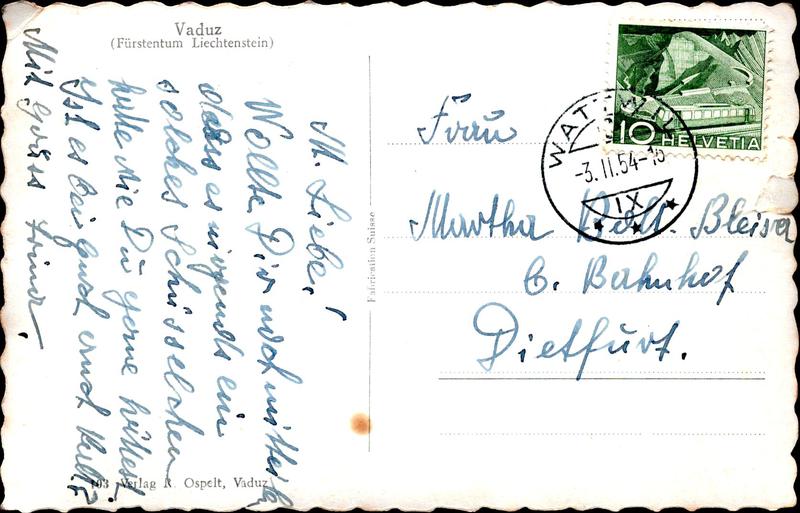 Vaduz
(Fürstentum Liechtenstein)
M. Liebe!
Wollte Dir noch mitteilen
dass es nirgends ein
solches Schüsselchen
hatte wie Du gerne hättest
Ist es bei euch
Mit Gruss
103 Verlag R. Ospelt, Vaduz
Fabrication Suisse
10 HELVETIA
WATTWIL
-3.II.54-18
IX
Frau
Martha
b. Bahnhof
Dietfurt.